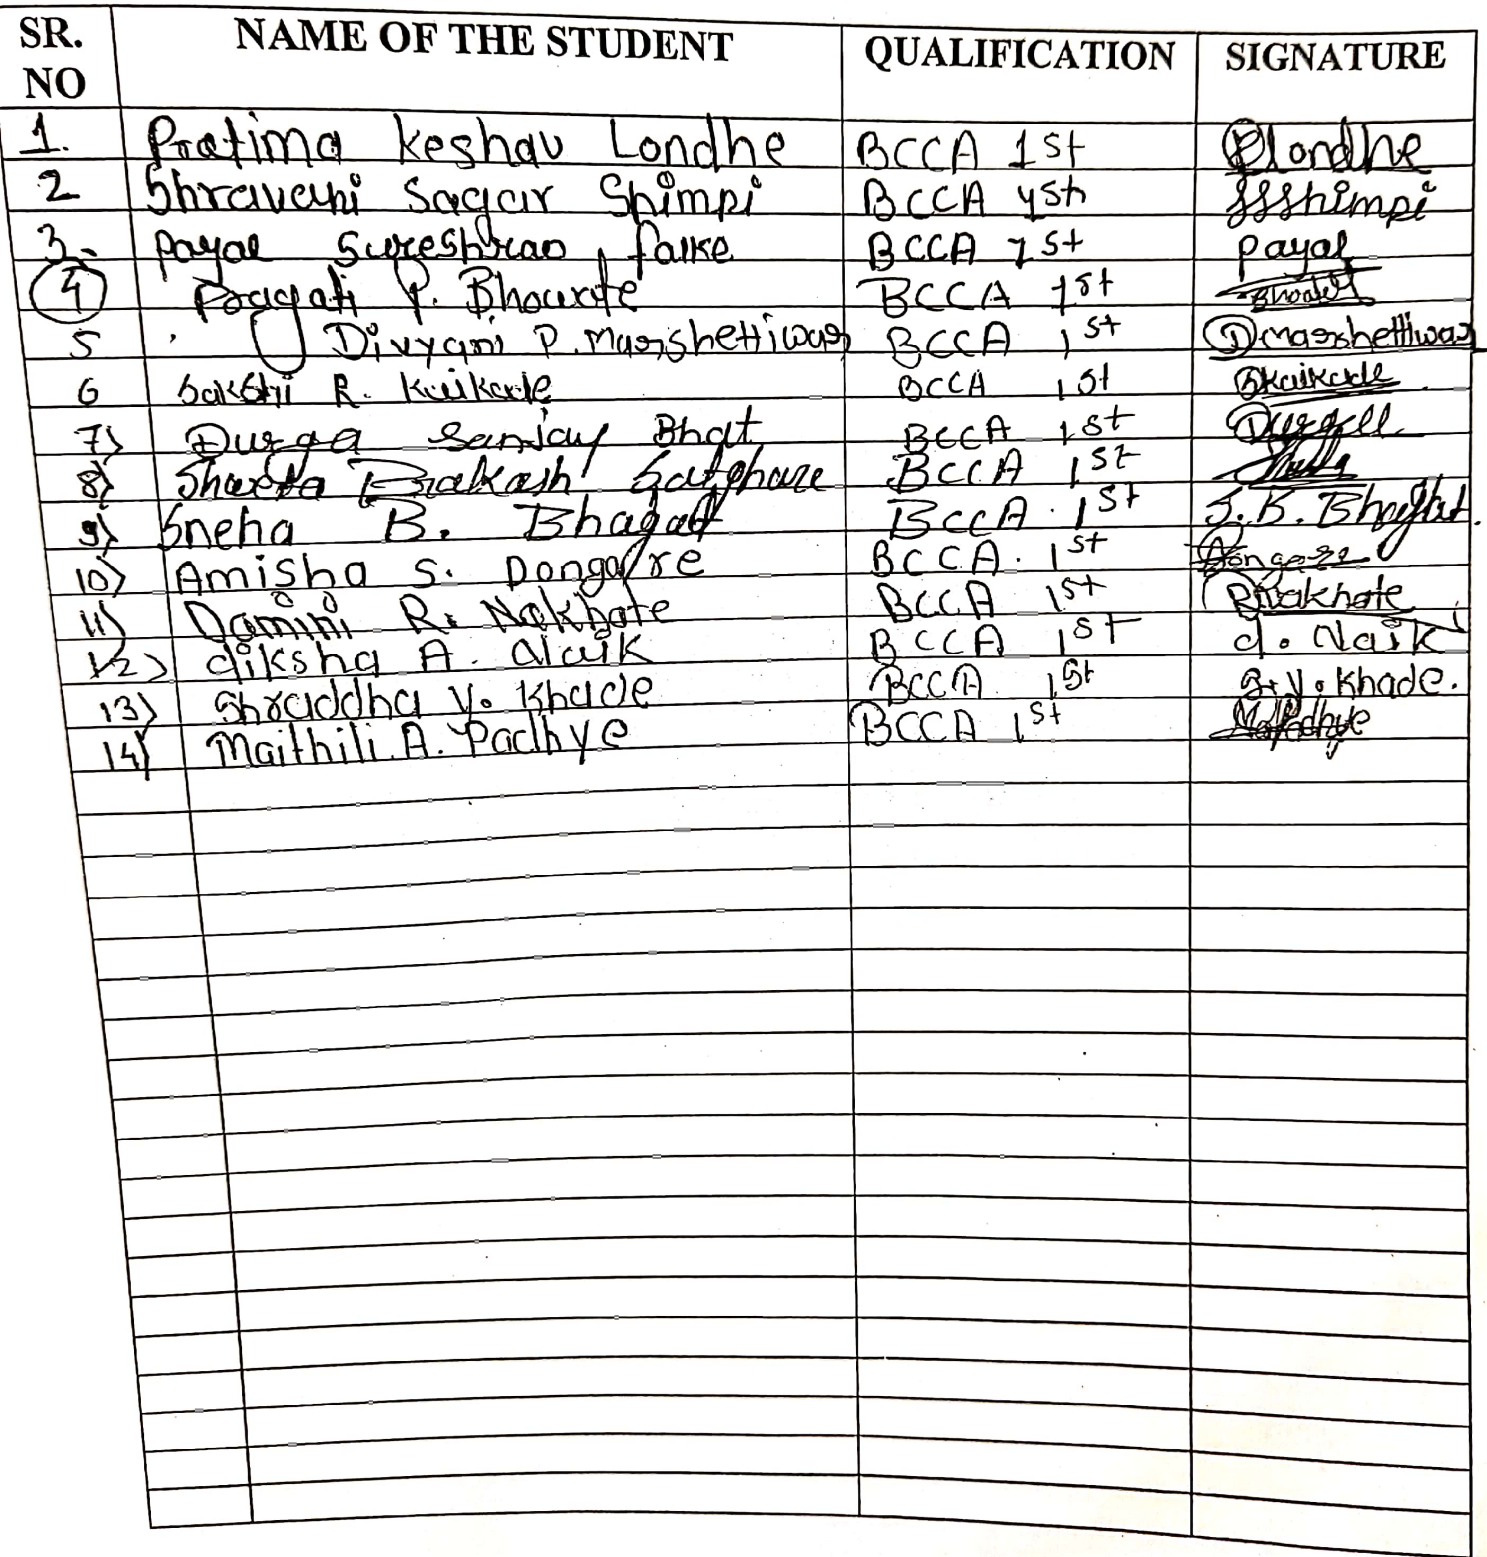 SR. NO NAME OF THE STUDENT QUALIFICATION SIGNATURE
1. Pratima Keshav Londhe BCCA 1st Plondhe
2 Shravani Sagar Shimpi BCCA 1st SSShimpi
3. Payal Sureshrao falke BCCA 1st Payal
4 Pragati P. Bhourte BCCA 1st
5 Divyani P. Marshettiwar BCCA 1st Dmarshettiwar
6 Sakshi R. Kaikade BCCA 1st SKaikade
7) Durga Sanjay Bhat BCCA 1st
8) Shweta Prakash Satghare BCCA 1st
9) Sneha B. Bhagat BCCA. 1st S. B. Bhaght.
10) Amisha S. Dongare BCCA. 1st Dongare
11) Damini R. Nakhate BCCA 1st DRNakhate
12) diksha A. Naik BCCA 1st d. Naik
13) Shraddha V. Khade BCCA 1st S. V. Khade.
14) Maithili A. Padhye BCCA 1st MAPadhye